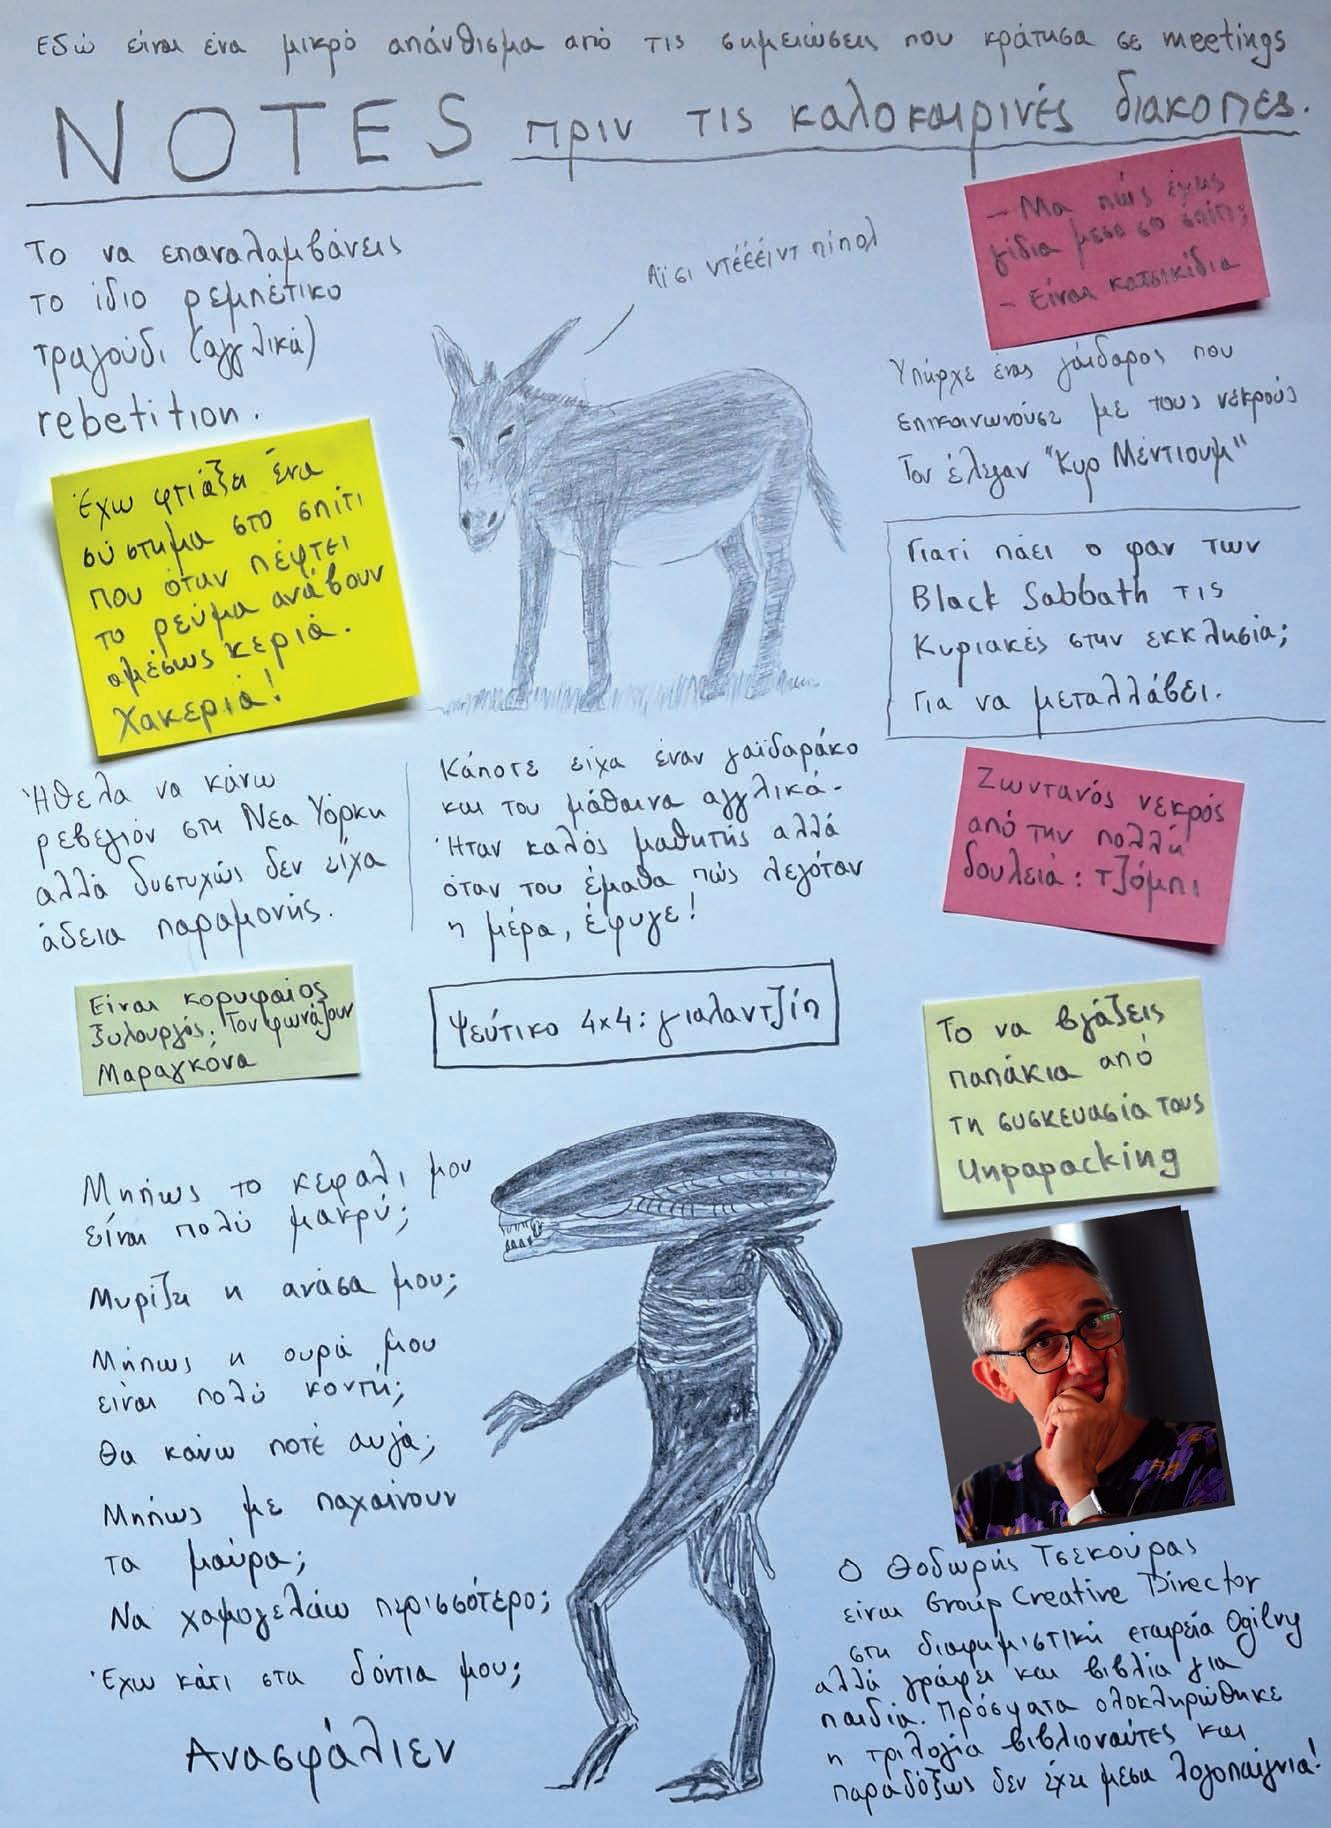 Εδώ είναι ένα μικρό απάνθισμα από τις σημειώσεις που κράτησα σε meetings
NOTES πριν τις καλοκαιρινές διακοπές.
Το να επαναλαμβάνεις
το ίδιο ρεμπέτικο
τραγούδι (αγγλικά)
rebetition.
Αϊ σι ντέέέιντ πίπολ
- Μα πώς έχεις
γίδια μέσα στο σπίτι;
- Είναι κατσικίδια
Υπήρχε ένας γάιδαρος που
επικοινωνούσε με τους νεκρούς
Τον έλεγαν "Κυρ Μέντιουμ"
Έχω φτιάξει ένα
σύστημα στο σπίτι
που όταν πέφτει
το ρεύμα ανάβουν
αμέσως κεριά.
Χακεριά!
Γιατί πάει ο φαν των
Black Sabbath τις
Κυριακές στην εκκλησία;
Για να μεταλλάβει.
Ήθελα να κάνω
ρεβεγιόν στη Νέα Υόρκη
αλλά δυστυχώς δεν είχα
άδεια παραμονής.
Κάποτε είχα έναν γαϊδαράκο
και του μάθαινα αγγλικά.
Ήταν καλός μαθητής αλλά
όταν του έμαθα πώς λεγόταν
η μέρα, έφυγε!
Ζωντανός νεκρός
από την πολλή
δουλειά: τζόμπι
Είναι κορυφαίος
ξυλουργός; Τον φωνάζουν
Μαραγκόνα
Ψεύτικο 4x4: γιαλαντζίπ
Το να βγάζεις
παπάκια από
τη συσκευασία τους
Unpapacking
Μήπως το κεφάλι μου
είναι πολύ μακρύ;
Μυρίζει η ανάσα μου;
Μήπως η ουρά μου
είναι πολύ κοντή;
Θα κάνω ποτέ αυγά;
Μήπως με παχαίνουν
τα μαύρα;
Να χαμογελάω περισσότερο;
Έχω κάτι στα δόντια μου;
Ανασφάλιεν
Ο Θοδωρής Τσεκούρας
είναι Group Creative Director
στη διαφημιστική εταιρεία Ogilvy
αλλά γράφει και βιβλία για
παιδιά. Πρόσφατα ολοκληρώθηκε
η τριλογία βιβλιοναύτες και
παραδόξως δεν έχει μέσα λογοπαίγνια!